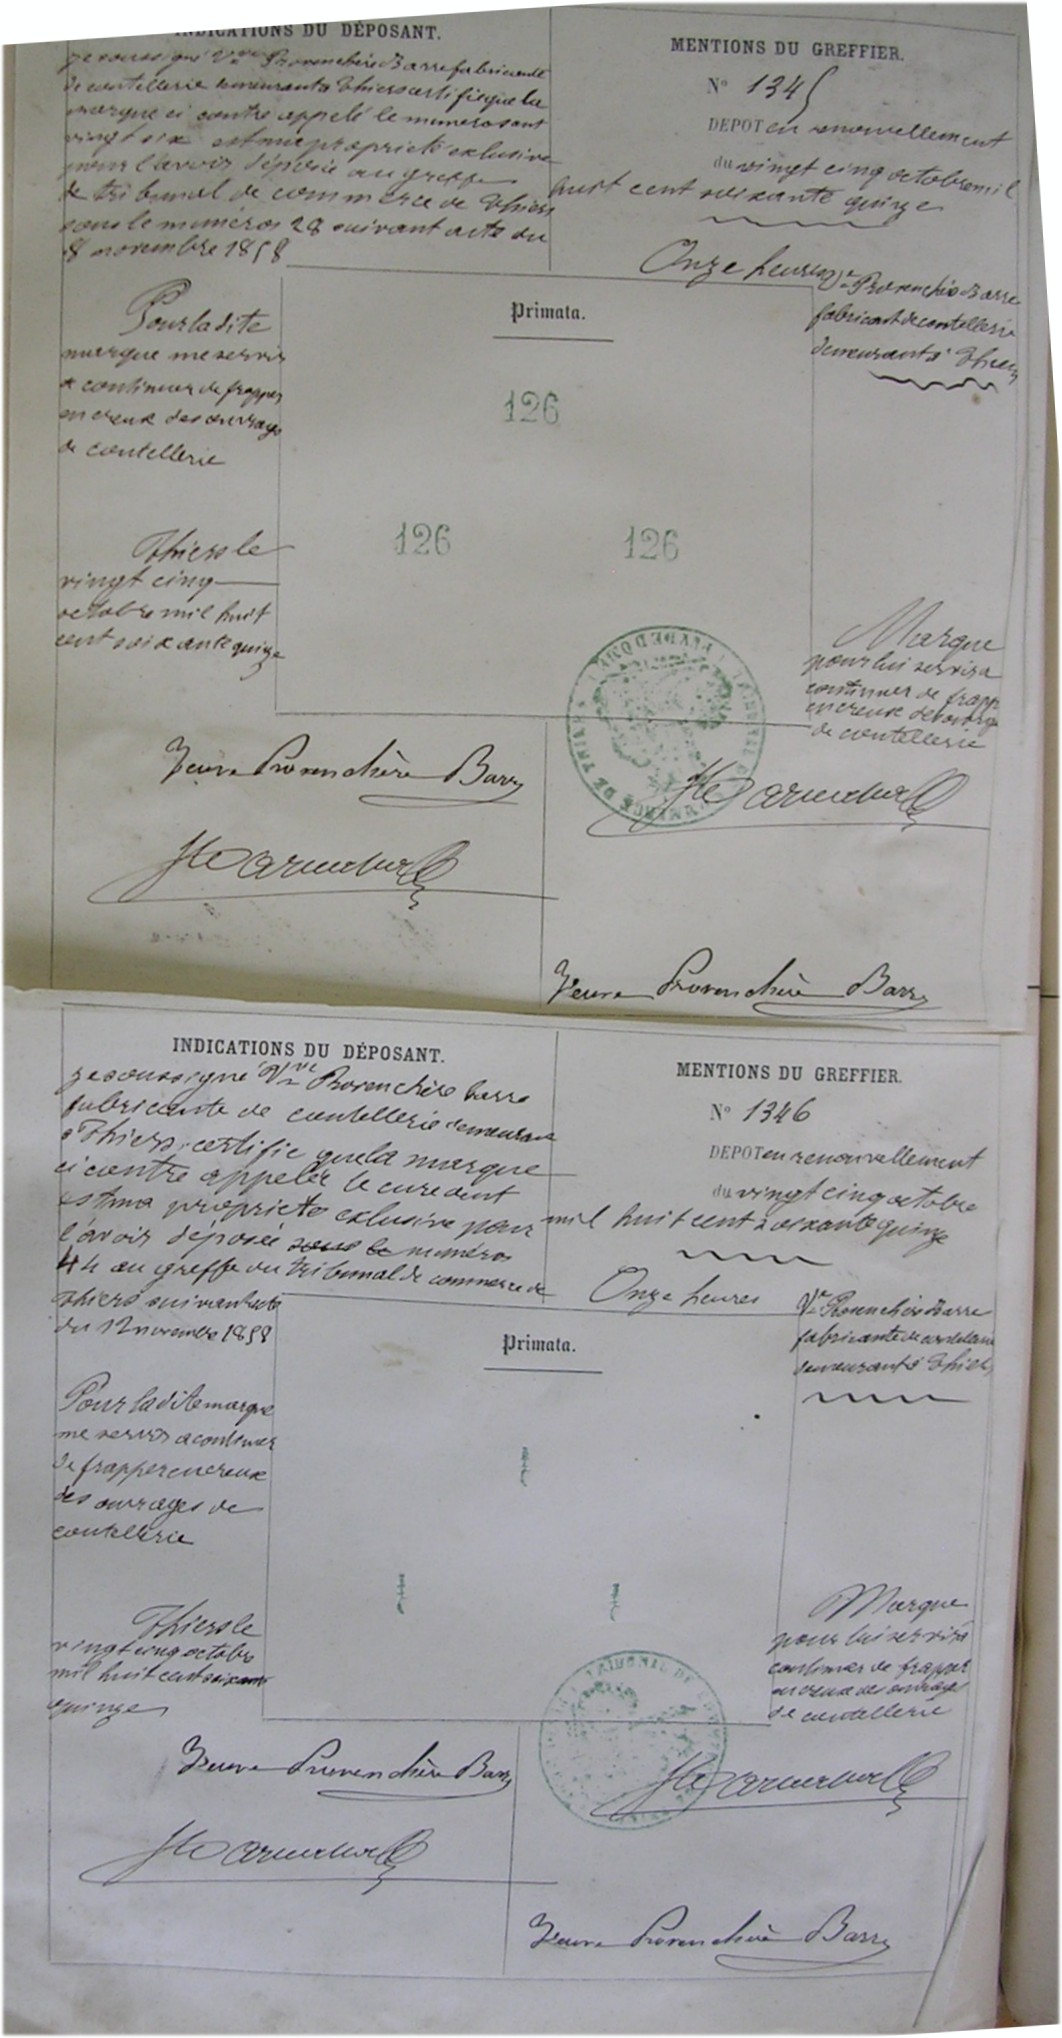 INDICATIONS DU DÉPOSANT.
je soussigné Vve Provenchère Barre fabricante
de coutellerie demeurant à Thiers certifie que la
marque ci contre appelé le numero sant
vingt six est ma propriété exlusive
pour l'avoir déposée au greffe
de tribunal de commerce de Thiers
sous le numéros 28 suivant acte du
8 novembre 1858
Pour la dite
marque me servir
a continuer de frapper
en creux des ouvrages
de coutellerie
Thiers le
vingt cinq
octobre mil huit
cent soixante quinze
MENTIONS DU GREFFIER.
N° 1345
DEPOT en renouvellement
du vingt cinq octobre mil
huit cent soixante quinze
Onze heures
Ve Provenchère Barre
fabricant de coutellerie
demeurant à Thiers
Primata.
126
126 126
Marque
pour lui servir a
continuer de frapp
en creux des ouvrages
de coutellerie
Veuve Provenchère Barre
Veuve Provenchère Barre
INDICATIONS DU DÉPOSANT.
je soussigné Vve Provenchère barre
fabricante de coutellerie demeurant
a Thiers certifie que la marque
ci contre appelée le curedent
est ma propriété exlusive pour
l'avoir déposée sous le numéros
44 au greffe du tribunal de commerce de
Thiers suivant acte
du 12 novembre 1858
Pour la dite marque
me servir a continuer
de frapper en creux
des ouvrages de
coutellerie
Thiers le
vingt cinq octobre
mil huit cent soixante
quinze
MENTIONS DU GREFFIER.
N° 1346
DEPOT en renouvellement
du vingt cinq octobre
mil huit cent soixante quinze
Onze heures
Ve Provenchère Barre
fabricante de coutellerie
demeurant à Thiers
Primata.
Marque
pour lui servir a
continuer de frapper
en creux des ouvrages
de coutellerie
TRIBUNAL DE
Veuve Provenchère Barre
Veuve Provenchère Barre